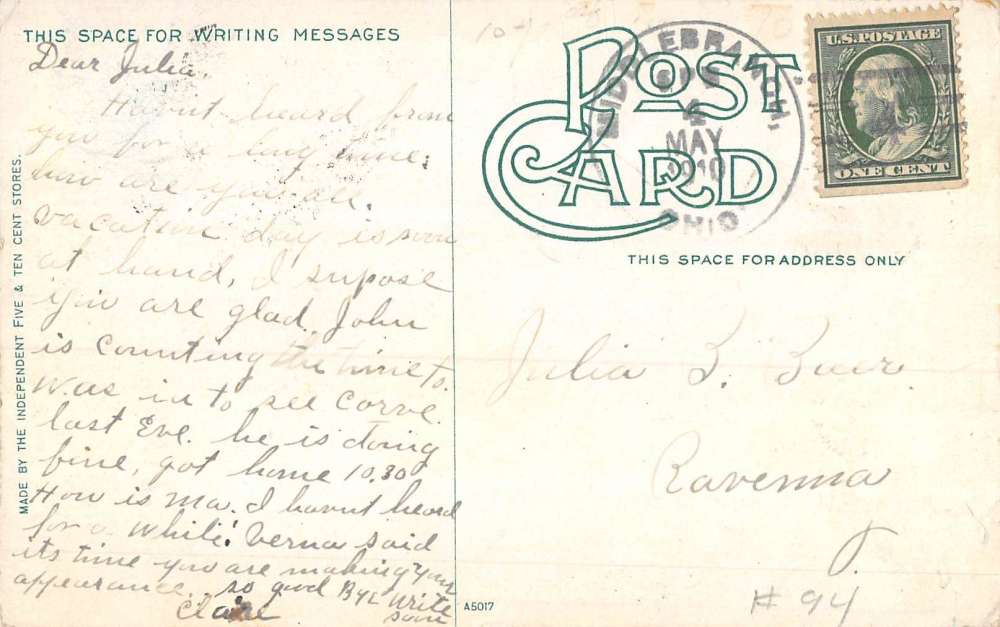 THIS SPACE FOR WRITING MESSAGES
Dear Julia,
Havnt heard from
you for a long time,
how are you all.
Vacation day is soon
at hand, I supose
you are glad. John
is counting the time to.
Was in to see Corve
last Eve. he is doing
fine, got home 10.30
How is Ma. I havnt heard
for a while! Verna said
its time you are making your
appearance. so good Bye Write
Claire soon
MADE BY THE INDEPENDENT FIVE & TEN CENT STORES.
POST CARD
MIDDLEBRANCH,
MAY
1910
OHIO
U.S. POSTAGE
ONE CENT
THIS SPACE FOR ADDRESS ONLY
Julia B.
Ravenna
O.
A5017
# 94